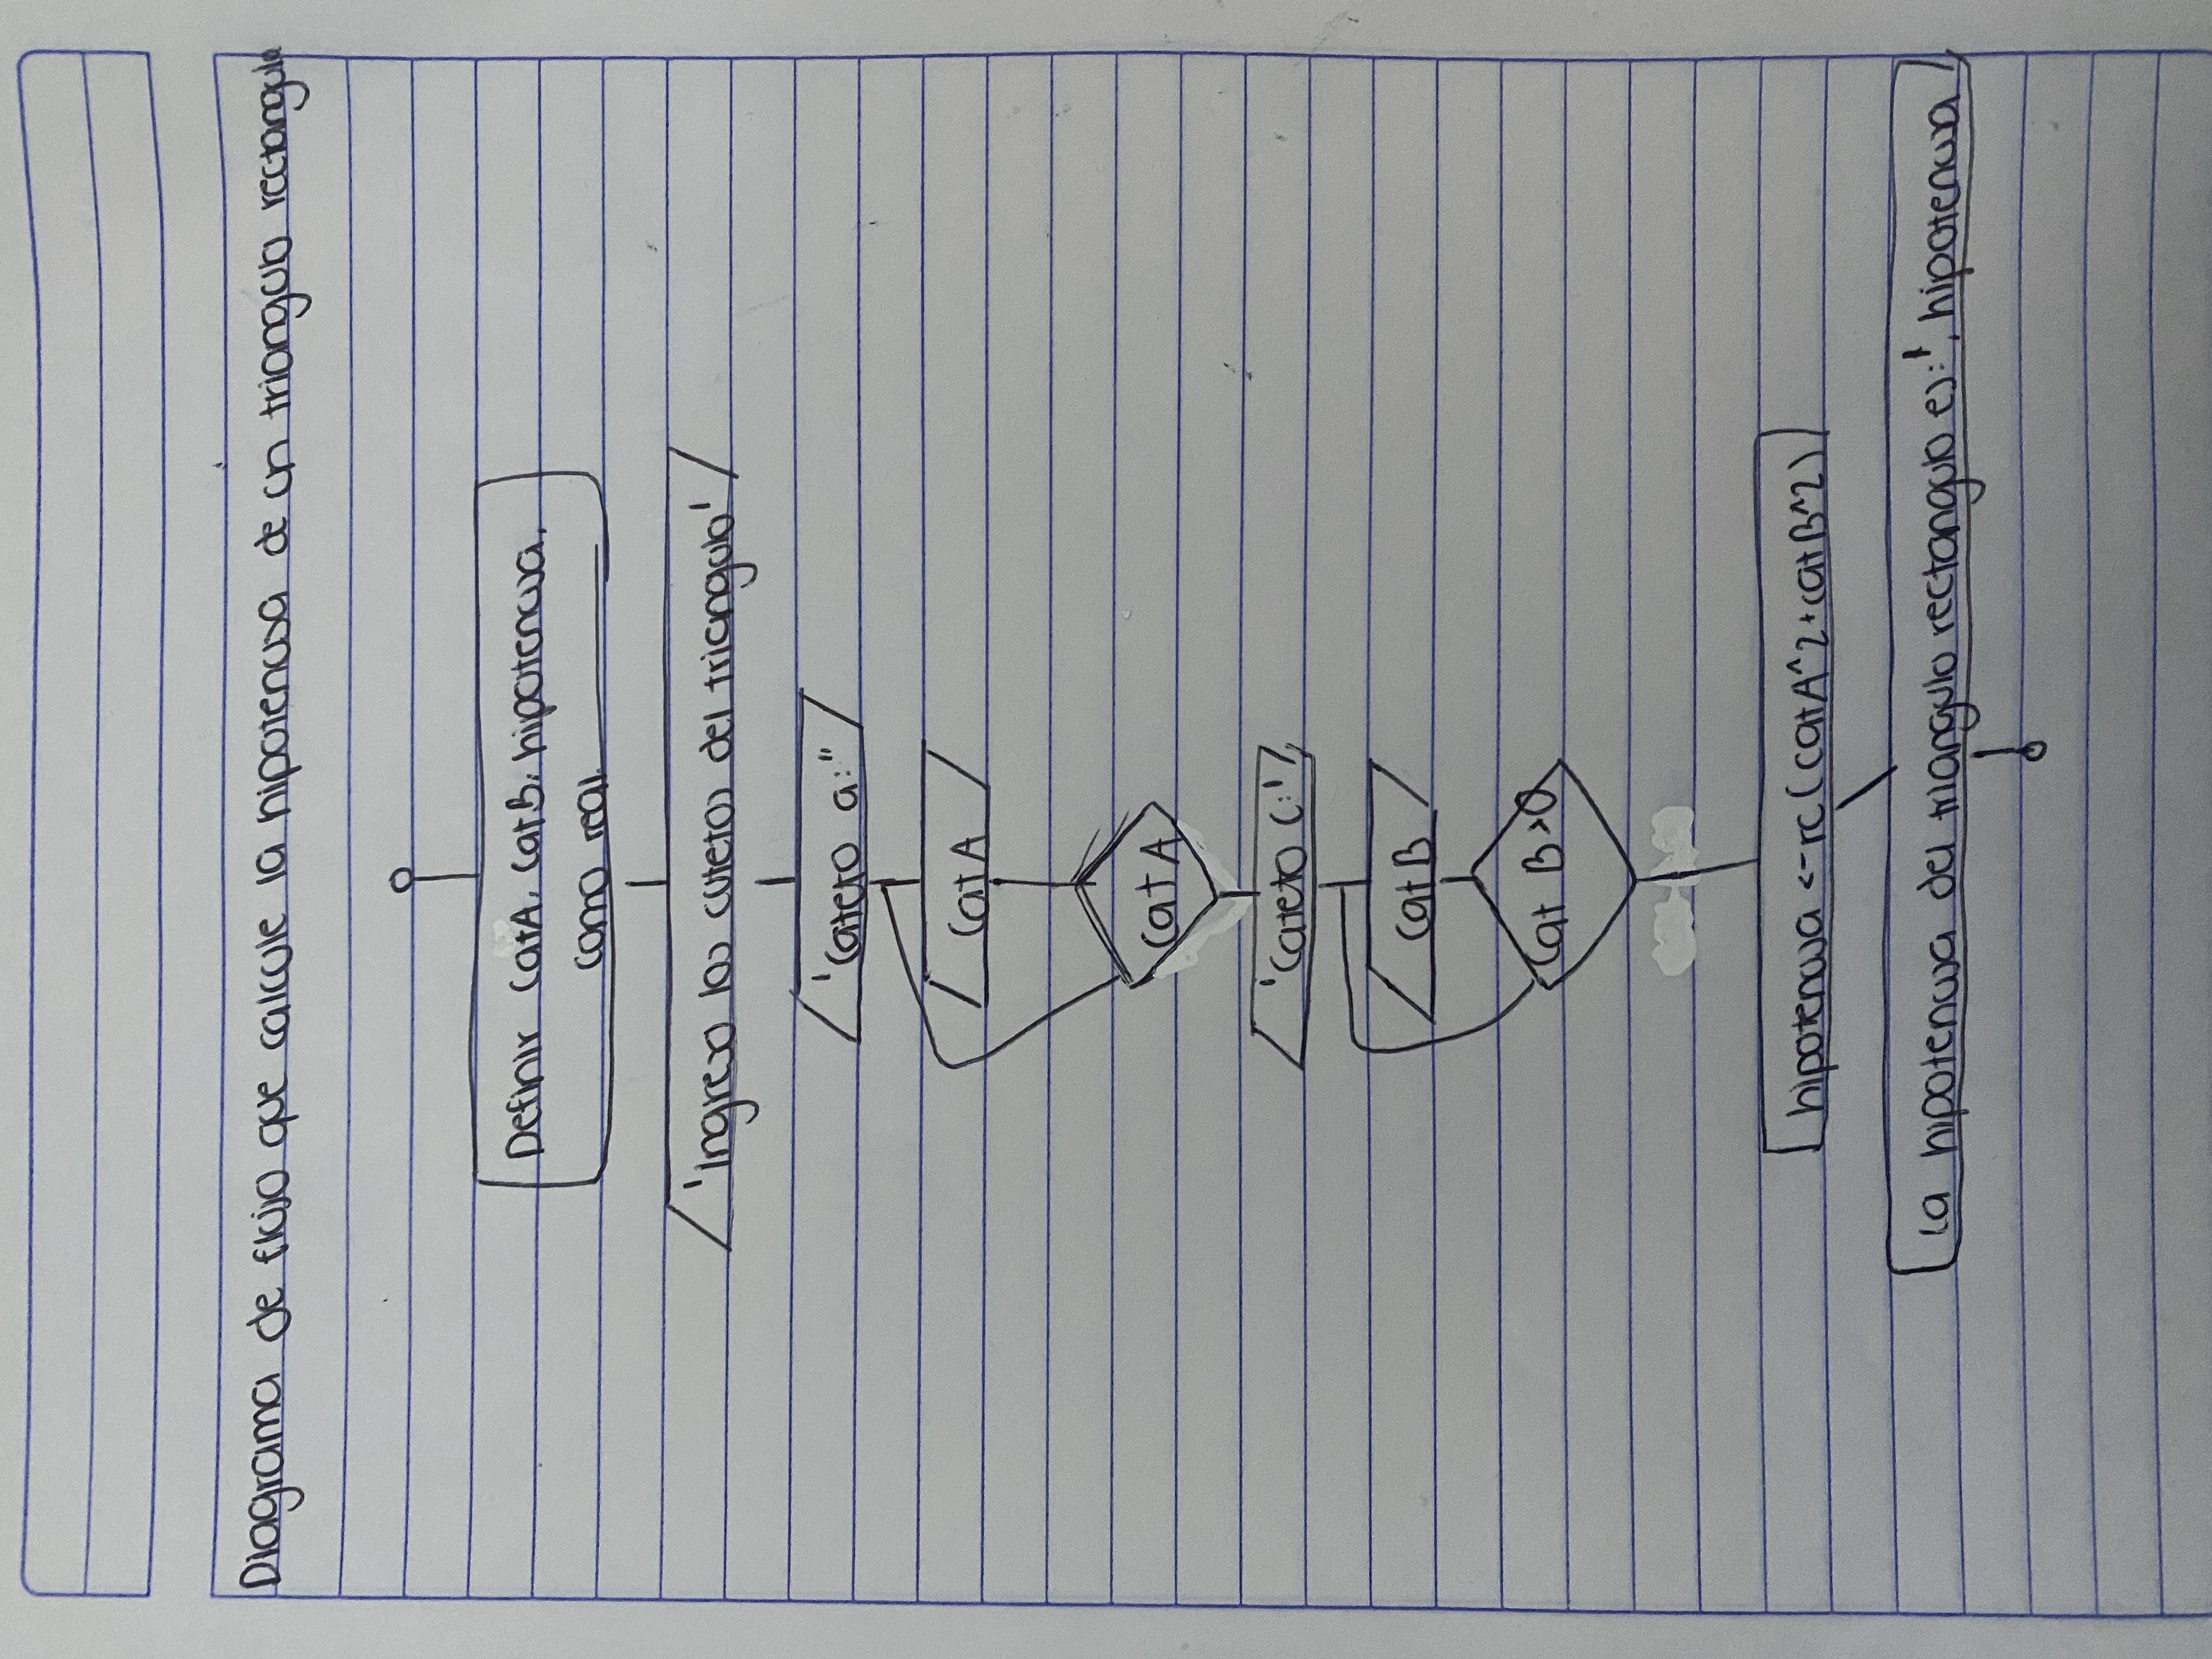 Diagrama de flujo que calcule la hipotenusa de un triangulo rectangulo
Definir catA, catB, hipotenusa,
como real.
'Ingrese los catetos del triangulo'
'Cateto a:"
Cat A
Cat A
'Cateto C:'
Cat B
Cat B >0
hipotenusa <-rc(catA^2+catB^2)
La hipotenusa del triangulo rectangulo es:', hipotenusa